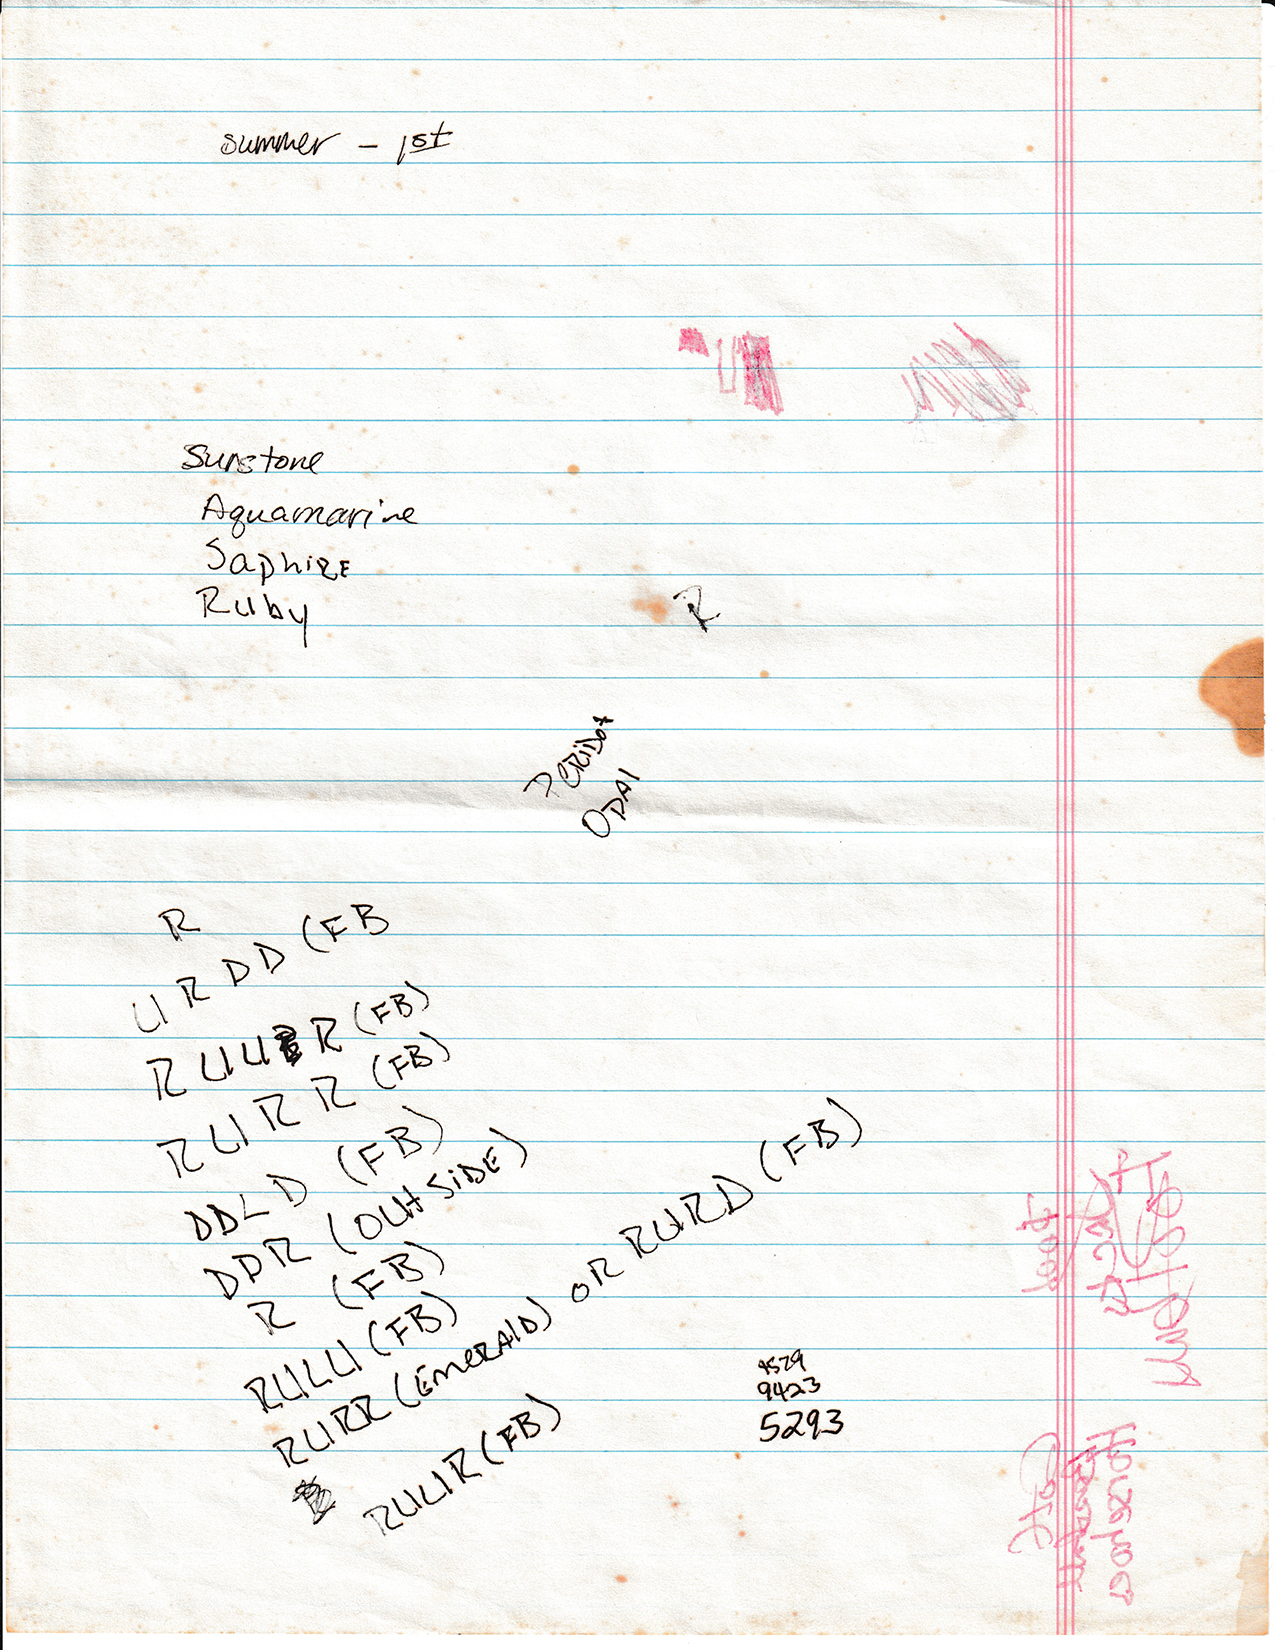 summer - 1st
Sunstone
Aquamarine
Saphire
Ruby
R
Peridot
Opal
R
URDD (FB
RUU R (FB)
RURR (FB)
DDLD (FB)
DDR (OUtSiDE)
R (FB)
RULU (FB)
RURR (EmERAlD) OR RURD (FB)
RUUR (FB)
4529
9423
5293